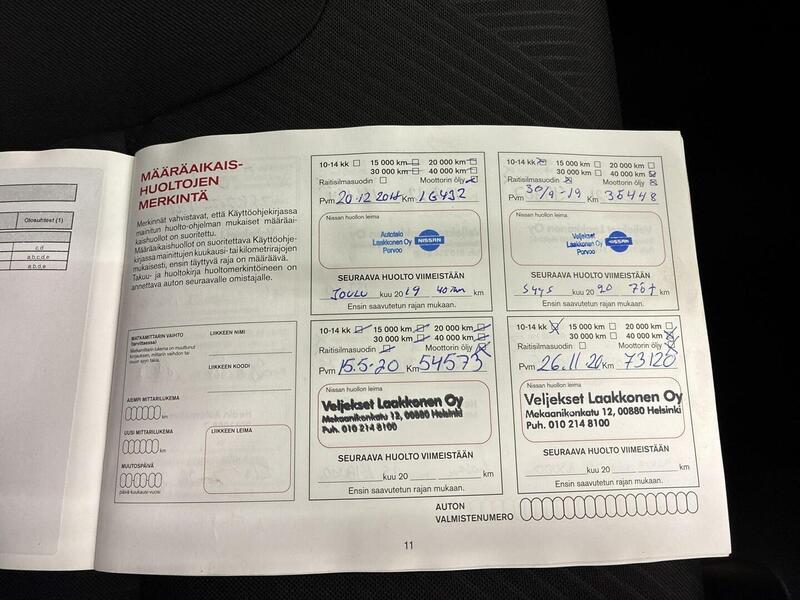 Olosuhteet (1)
c,d
a,b,c,d,e
a,b,d,e
MÄÄRÄAIKAIS-
HUOLTOJEN
MERKINTÄ
Merkinnät vahvistavat, että Käyttöohjekirjassa
mainitun huolto-ohjelman mukaiset määräai-
kaishuollot on suoritettu.
Määräaikaishuollot on suoritettava Käyttöohje-
kirjassa mainittujen kuukausi- tai kilometrirajojen
mukaisesti, ensin täyttyvä raja on määräävä.
Takuu- ja huoltokirja huoltomerkintöineen on
annettava auton seuraavalle omistajalle.
MATKAMITTARIN VAIHTO
(tarvittaessa)
Matkamittarin lukema on muuttunut
korjauksen, mittarin vaihdon tai
muun syyn takia.
AIEMPI MITTARILUKEMA
km
UUSI MITTARILUKEMA
km
MUUTOSPÄIVÄ
päivä-kuukausi-vuosi
LIIKKEEN NIMI
LIIKKEEN KOODI
LIIKKEEN LEIMA
10-14 kk 15 000 km 20 000 km
30 000 km 40 000 km
Raitisilmasuodin Moottorin öljy
Pvm 20.12 2018 Km 16432
Nissan huollon leima
Autotalo
Laakkonen Oy
Porvoo
NISSAN
SEURAAVA HUOLTO VIIMEISTÄÄN
JOULU kuu 2019 40 km
Ensin saavutetun rajan mukaan.
10-14 kk 15 000 km 20 000 km
30 000 km 40 000 km
Raitisilmasuodin Moottorin öljy
Pvm 30/9-19 Km 38448
Nissan huollon leima
Veljekset
Laakkonen Oy
Porvoo
NISSAN
SEURAAVA HUOLTO VIIMEISTÄÄN
SYYS kuu 2020 78t km
Ensin saavutetun rajan mukaan.
10-14 kk 15 000 km 20 000 km
30 000 km 40 000 km
Raitisilmasuodin Moottorin öljy
Pvm 15.5.20 Km 54573
Nissan huollon leima
Veljekset Laakkonen Oy
Mekaanikonkatu 12, 00880 Helsinki
Puh. 010 214 8100
SEURAAVA HUOLTO VIIMEISTÄÄN
kuu 20 km
Ensin saavutetun rajan mukaan.
10-14 kk 15 000 km 20 000 km
30 000 km 40 000 km
Raitisilmasuodin Moottorin öljy
Pvm 26.11.20 Km 73120
Nissan huollon leima
Veljekset Laakkonen Oy
Mekaanikonkatu 12, 00880 Helsinki
Puh. 010 214 8100
SEURAAVA HUOLTO VIIMEISTÄÄN
kuu 20 km
Ensin saavutetun rajan mukaan.
AUTON
VALMISTENUMERO
11